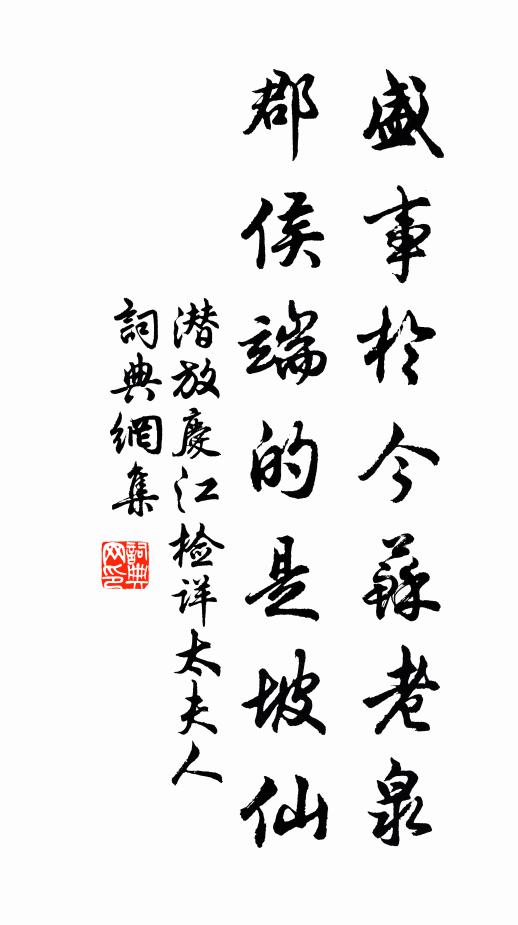 盛事於今蘇老泉
郡侯端的是坡仙
潜放慶江檢详太夫人
詞典網集
詞典網印